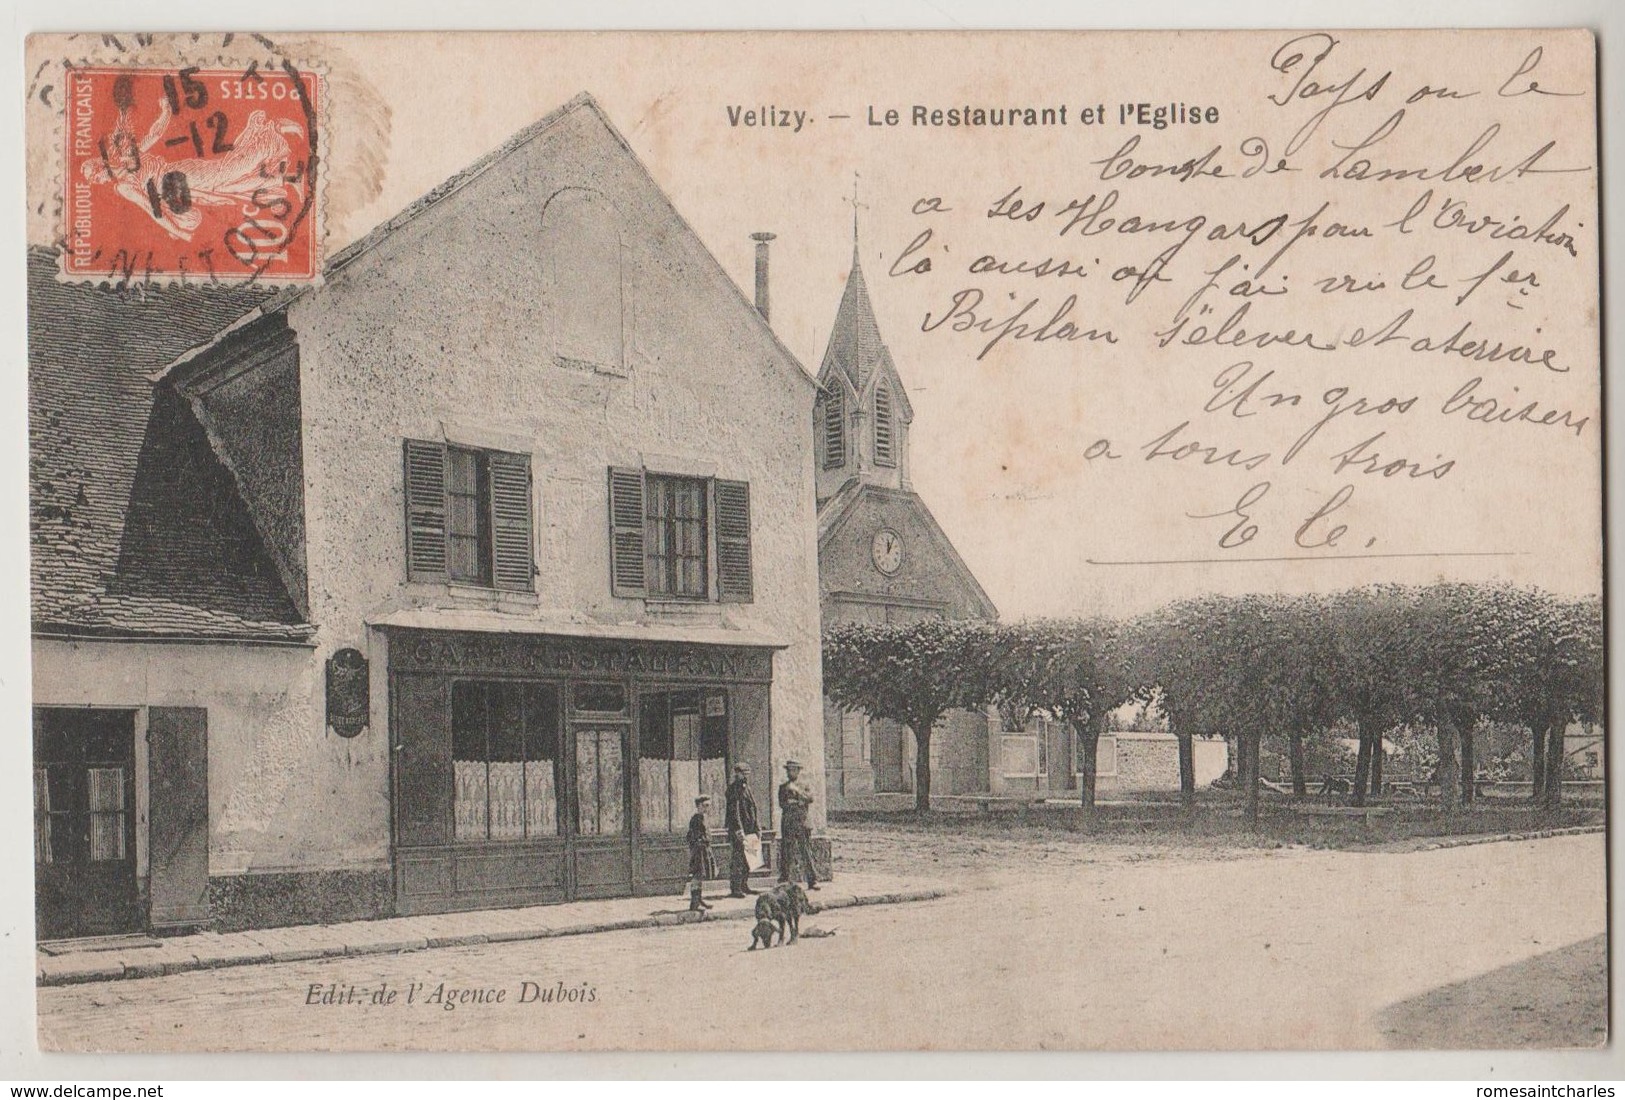 Velizy. — Le Restaurant et l'Eglise
Pays ou le
Conte de Lambert
a ses Hangars pour l'Aviation
là aussi ou j'ai vu le 1er
Biplan s'élever et aterrire
Un gros baisers
a tous trois
E Le.
RÉPUBLIQUE FRANÇAISE
POSTES
10c
15
19 -12
10
OISE
CAFÉ RESTAURANT
Edit. de l'Agence Dubois
www.delcampe.net
romesaintcharles